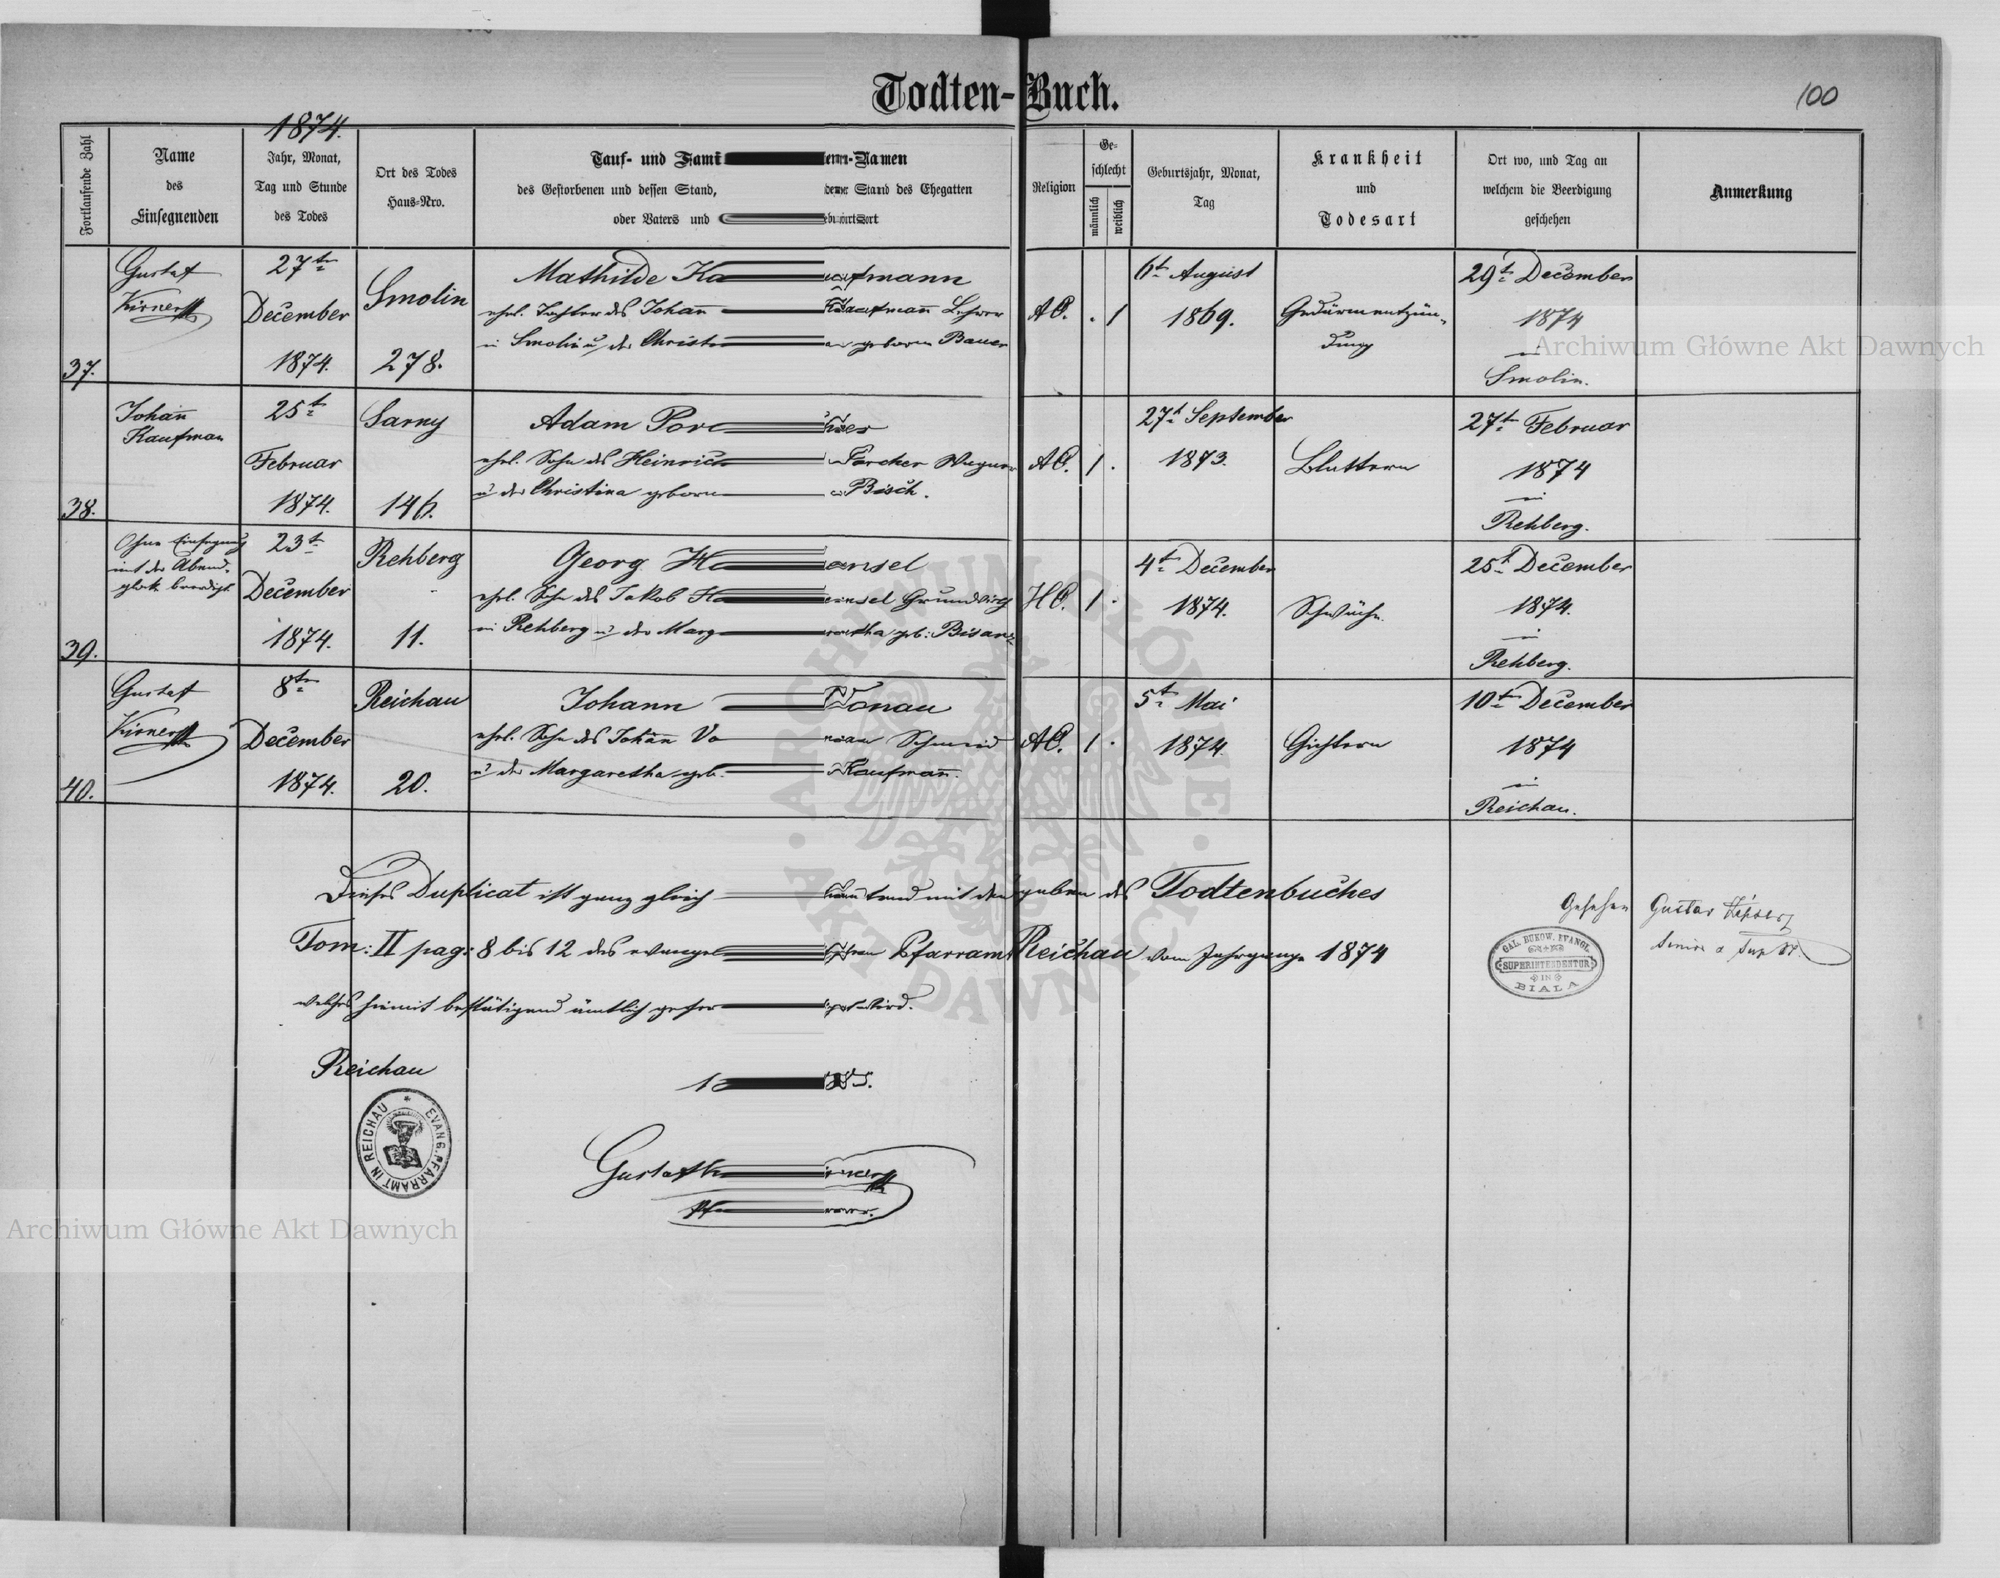 Todten-Buch.
100
1874.
Fortlaufende Zahl
Name
des
Einsegnenden
Jahr, Monat,
Tag und Stunde
des Todes
Ort des Todes
Haus-Nro.
Tauf- und Fami en-Namen
des Gestorbenen und dessen Stand, Stand des Ehegatten
oder Vaters und
Religion
Ge-
schlecht
männlich
weiblich
Geburtsjahr, Monat,
Tag
Krankheit
und
Todesart
Ort wo, und Tag an
welchem die Beerdigung
geschehen
Anmerkung
37.
Gustaf
Kirner
27te
December
1874.
Smolin
278.
Mathilde Ka ufmann
ehel. Tochter des Johan Kaufmann Lehrer
in Smolin u der Christ geborne Bauer
AC.
. 1
6t August
1869.
Gedärmentzün-
dung
29t December
1874
in
Smolin.
38.
Johan
Kaufman
25t
Februar
1874.
Sarny
146.
Adam Por cher
ehel. Sohn des Heinrich Porcher Wagner
u der Christina geborne Bisch.
AC.
1 .
27t September
1873.
Blattern
27te Februar
1874
in
Rehberg.
39.
Ohne Einsegnung
mit der Abend-
glok beerdigt
23t
December
1874.
Rehberg
11.
Georg H ensel
ehel. Sohn des Jakob H ensel Grundwirth
in Rehberg u der Marg retha geb: Bisanz
HC.
1 .
4te December
1874.
Schwäche.
25t December
1874.
in
Rehberg.
40.
Gustaf
Kirner
8te
December
1874.
Reichau
20.
Johann Vonau
ehel. Sohn des Johann Vo nau Schmied
u der Margaretha geb. Kaufmann.
AC.
1 .
5t Mai
1874.
Gichtern
10te December
1874
in
Reichau.
Dieses Duplicat ist ganz gleich lautend mit den des Todtenbuches
Tom: II pag: 8 bis 12 des evangel Pfarramt Reichau vom Jahrgange 1874
welches hiemit bestätigend ämtlich gefer wird.
Reichau
EVANG. PFARRAMT IN REICHAU
Gustaf K irner
Pf
Gesehen Gustav
GAL. BUKOW. EVANGL.
SUPERINTENDENTUR
IN
BIALA
Archiwum Główne Akt Dawnych
Archiwum Główne Akt Dawnych
ARCHIWUM GŁÓWNE AKT DAWNYCH